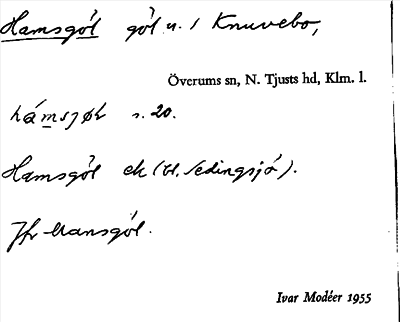 Hamsgöl göl u. / Knuvebo,
Överums sn, N. Tjusts hd, Klm. l.
hámsjøl s. 20.
Hamsgöl ek (bl. Sedingsjö).
Jfr Mansgöl.
Ivar Modéer 1955